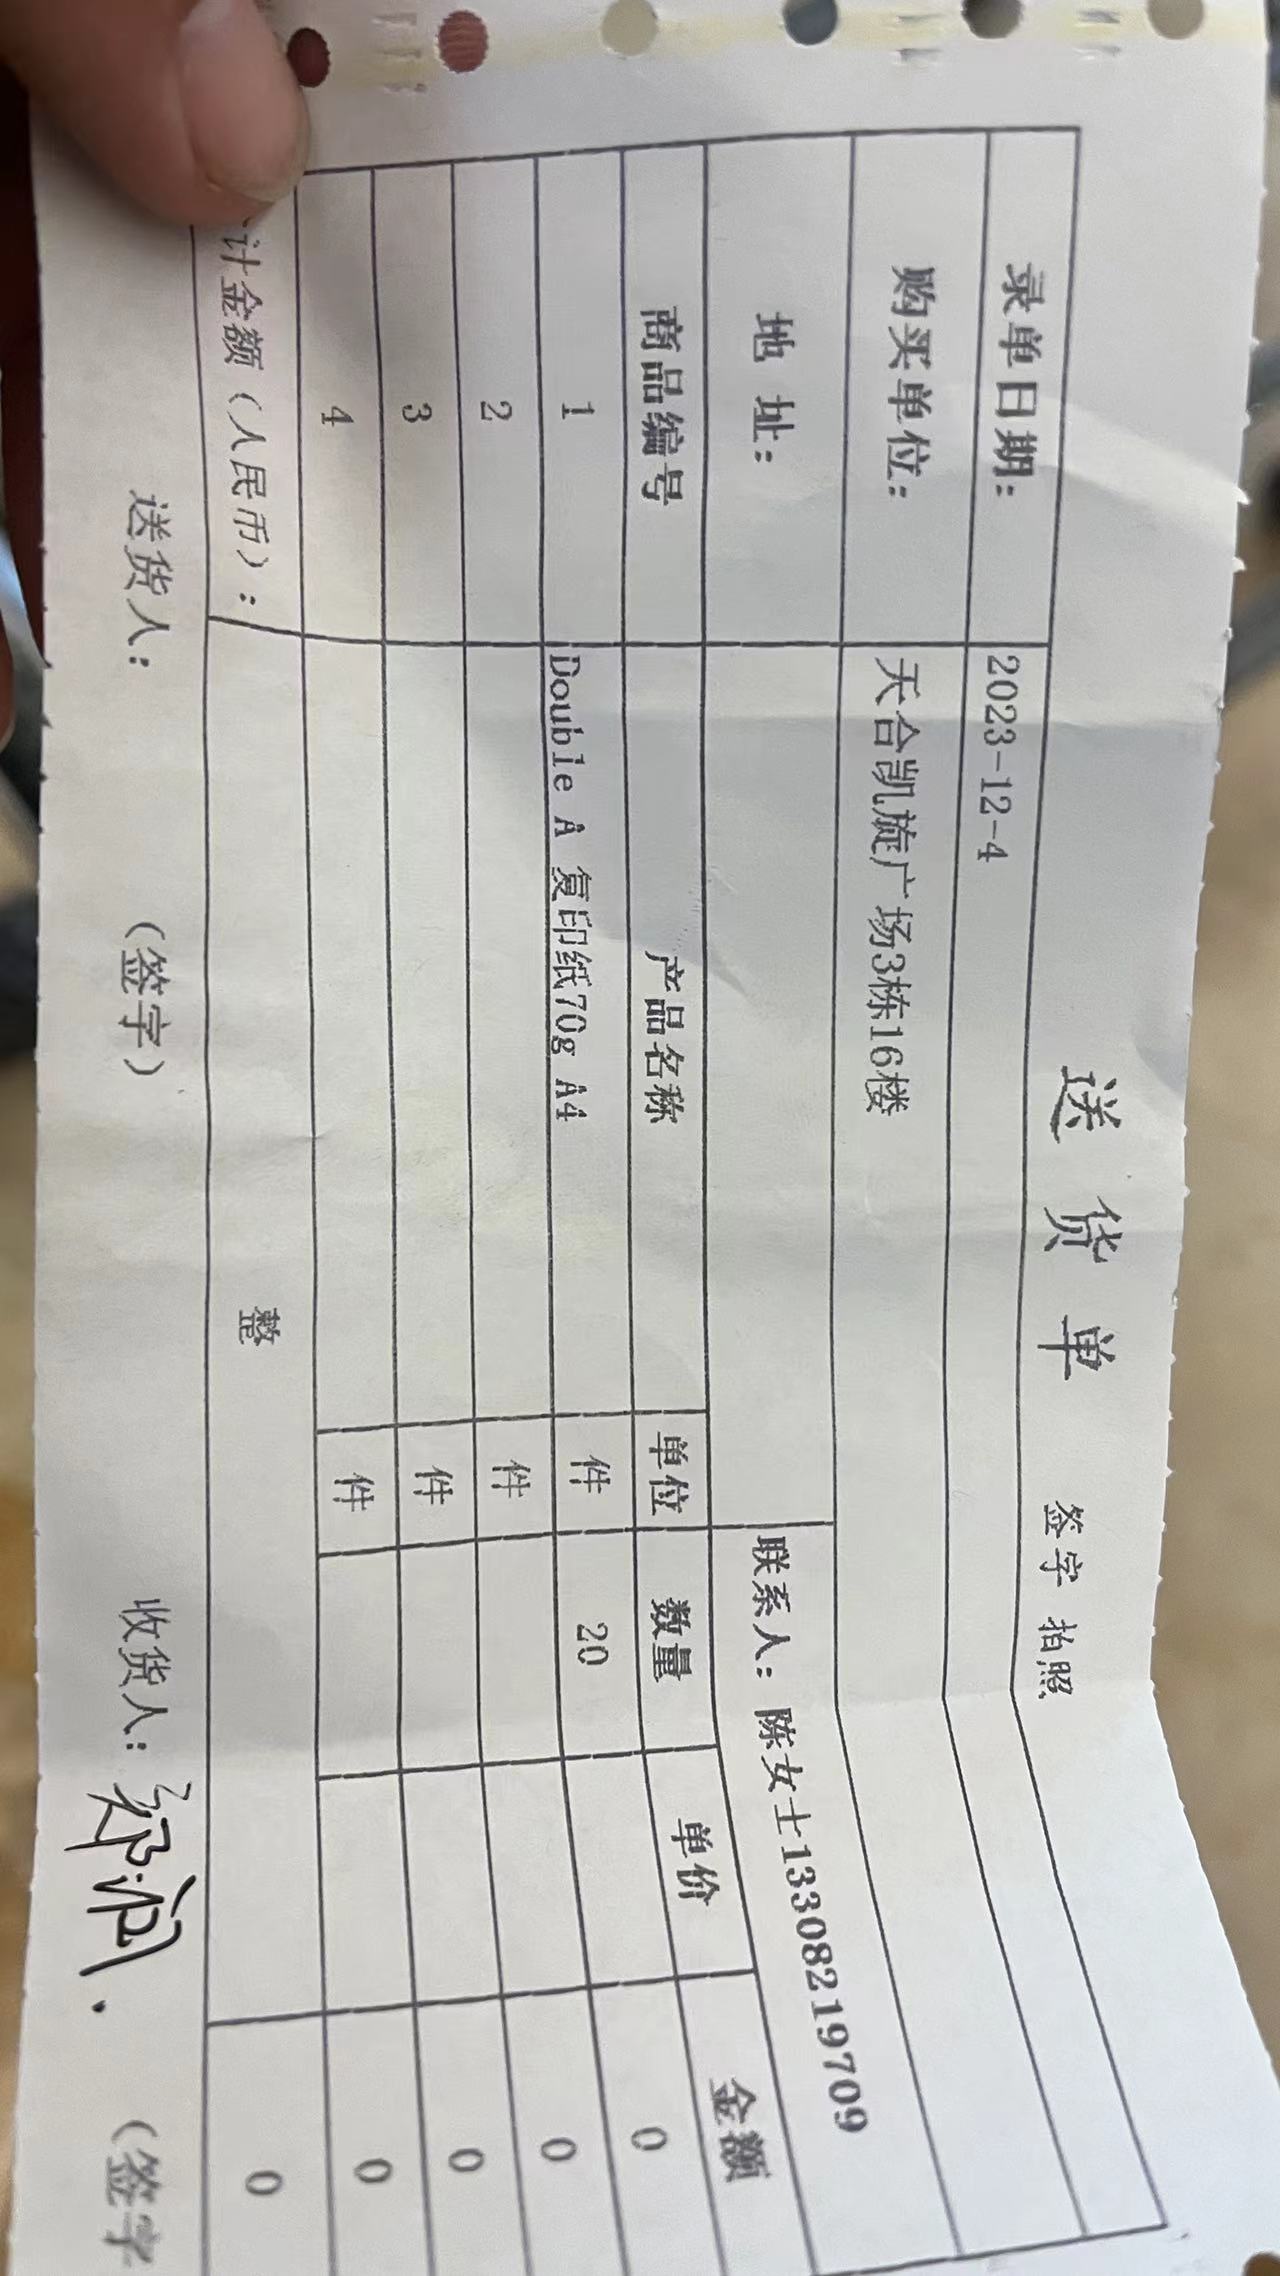 送货单 签字 拍照
录单日期: 2023-12-4
购买单位: 天合凯旋广场3栋16楼
地 址: 联系人: 陈女士13308219709
商品编号 产品名称 单位 数量 单价 金额
1 Double A 复印纸70g A4 件 20 0
2 件 0
3 件 0
4 件 0
计金额(人民币): 整 0
送货人: (签字) 收货人: (签字